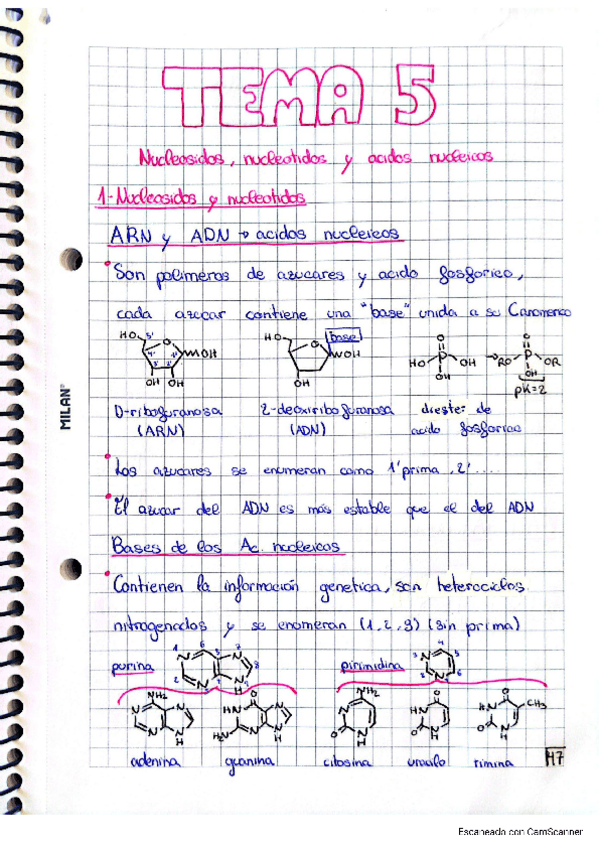 TEMA 5
Nucleosidos, nucleotidos y acidos nucleicos
1-Nucleosidos y nucleotidos
ARN y ADN → acidos nucleicos
Son polimeros de azucares y acido fosforico,
cada azucar contiene una "base" unida a su C anomerico
HO 5' O OH 4' 1' 3' 2' OH OH
HO O base OH OH
O HO P OH OH → O RO P OR OH
pK=2
D-ribofuranosa 2-deoxiribofuranosa diester de
(ARN) (ADN) acido fosforico
Los azucares se enumeran como 1' prima, 2'....
El azucar del ADN es más estable que el del ADN
Bases de los Ac. nucleicos
Contienen la información genetica, son heterociclos
nitrogenados y se enumeran (1,2,3) (sin prima)
purina pirimidina
adenina guanina citosina uracilo timina
47
MILAN
Escaneado con CamScanner